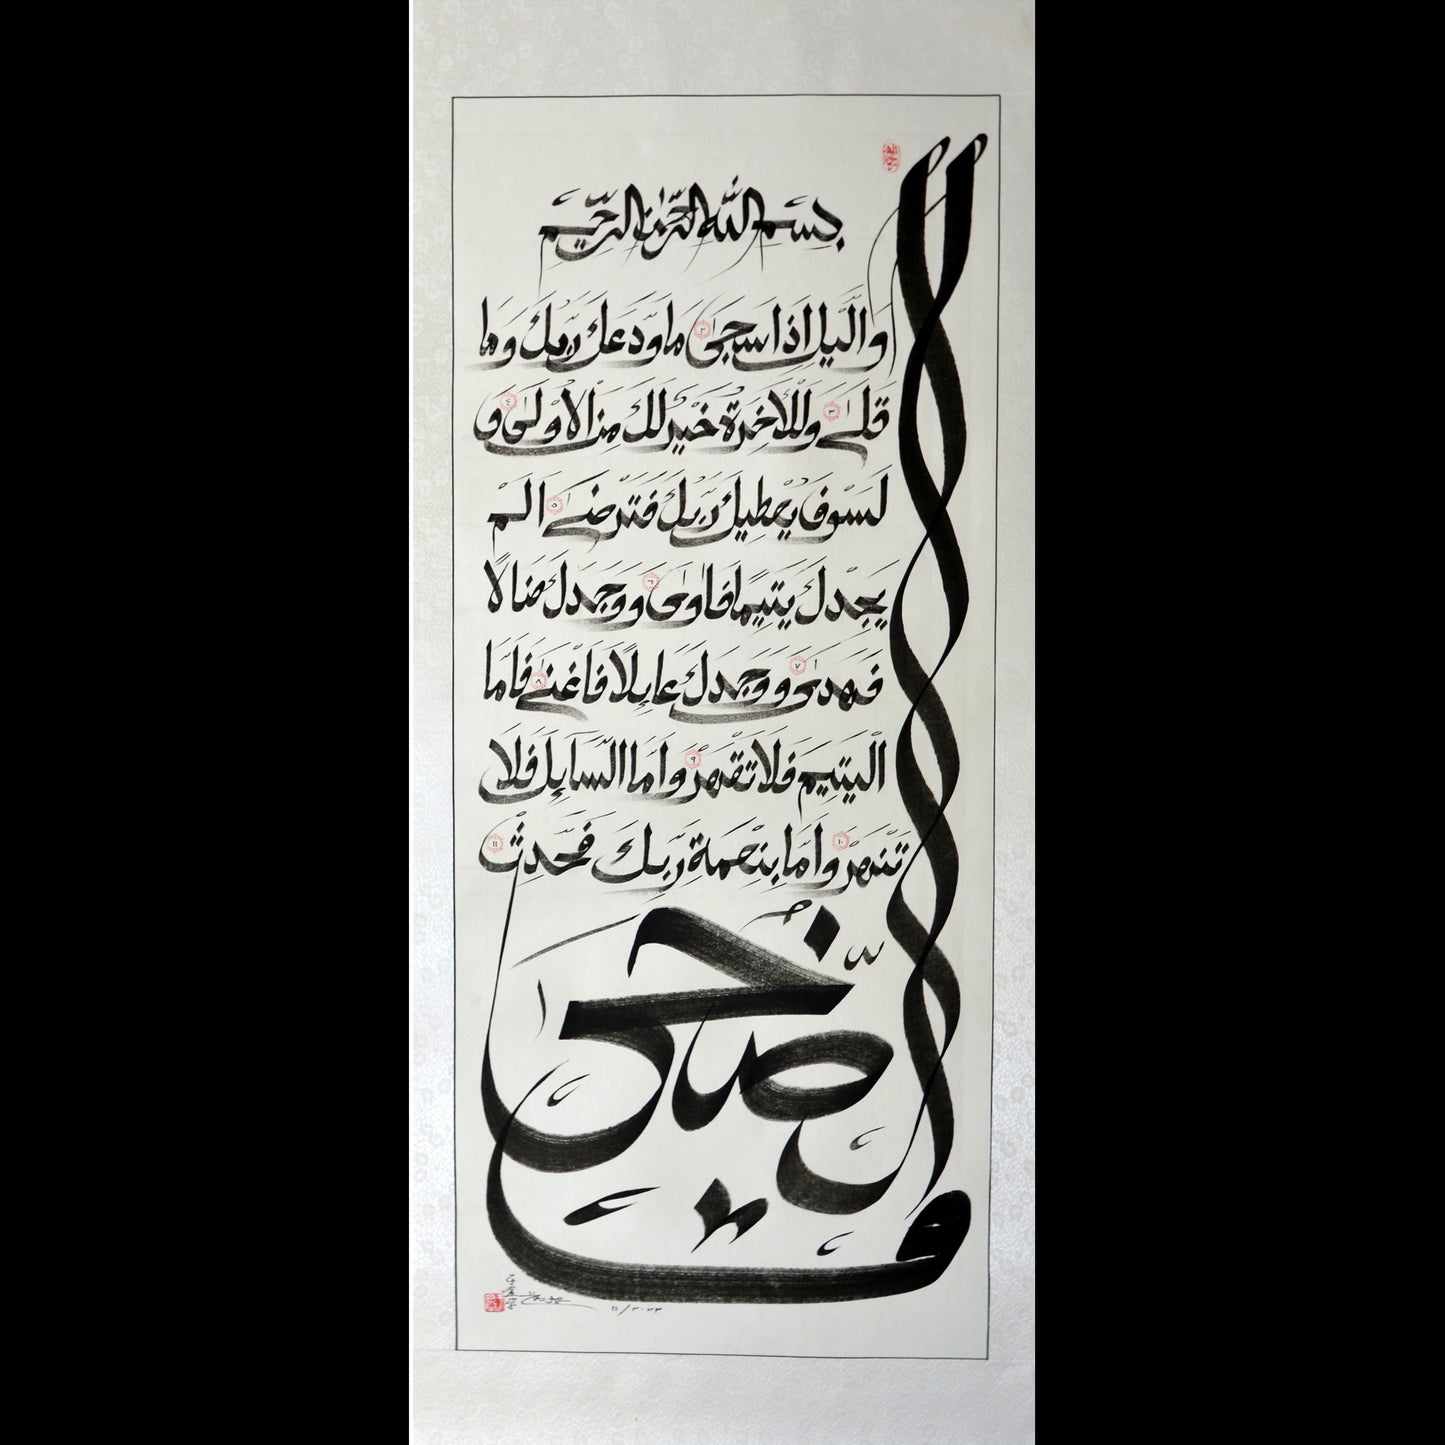 بِسْمِ اللّٰهِ الرَّحْمٰنِ الرَّحِيْمِ
وَالَّيْلِ اِذَا سَجٰى ٢ مَا وَدَّعَكَ رَبُّكَ وَمَا
قَلٰى ٣ وَلَلْاٰخِرَةُ خَيْرٌ لَكَ مِنَ الْاُوْلٰى ٤ وَ
لَسَوْفَ يُعْطِيْكَ رَبُّكَ فَتَرْضٰى ٥ اَلَمْ
يَجِدْكَ يَتِيْمًا فَاٰوٰى ٦ وَوَجَدَكَ ضَالًّا
فَهَدٰى ٧ وَوَجَدَكَ عَايِٕلًا فَاَغْنٰى ٨ فَاَمَّا
الْيَتِيْمَ فَلَا تَقْهَرْ ٩ وَاَمَّا السَّآىِٕلَ فَلَا
تَنْهَرْ ١٠ وَاَمَّا بِنِعْمَةِ رَبِّكَ فَحَدِّثْ ١١
وَالضُّحٰى